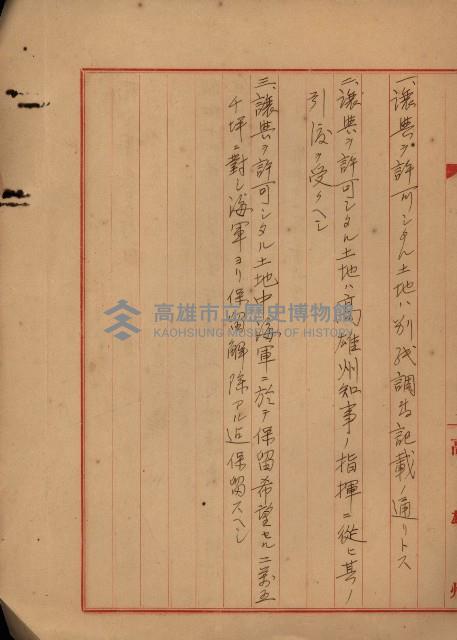 一、讓與ヲ許可シタル土地ハ別紙調書記載ノ通リトス
二、讓與ヲ許可シタル土地ハ高雄州知事ノ指揮ニ從ヒ其ノ
引渡ヲ受クヘシ
三、讓與ヲ許可シタル土地中海軍ニ於テ保留希望セル二萬五
千坪ニ對シ海軍ヨリ保留解除アル迄保留スヘシ
高雄州
高雄市立歷史博物館
KAOHSIUNG MUSEUM OF HISTORY